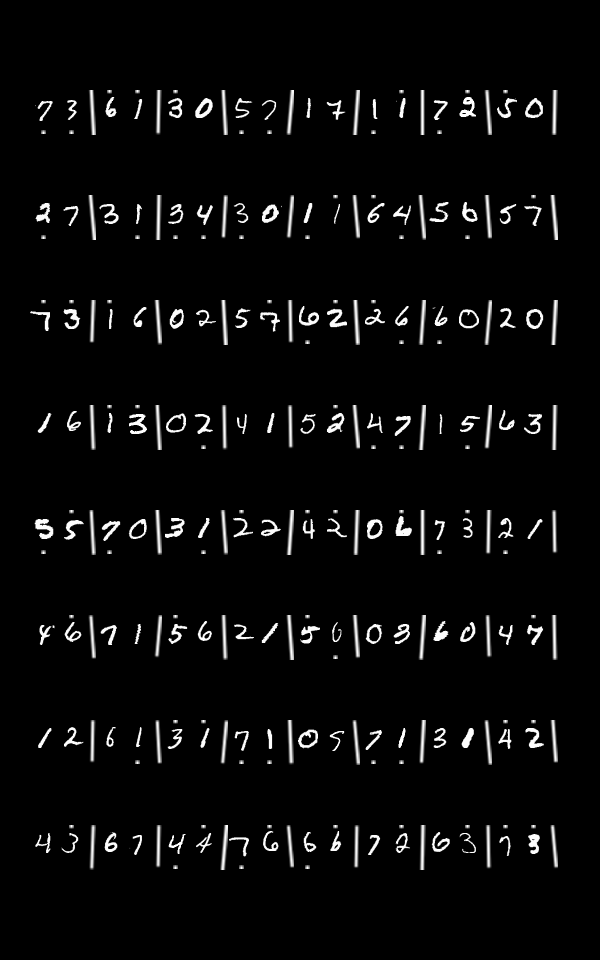 7̣ 3̣ | 6̇ 1̇ | 3̇ 0 | 5̣ 7̣ | 1 7 | 1̣ 1̇ | 7̣ 2̇ | 5̇ 0 |
2̣ 7 | 3 1̣ | 3̣ 4̣ | 3̣ 0 | 1̣ 1̇ | 6̇ 4̣ | 5 6̣ | 5 7̇ |
7̇ 3̇ | 1̇ 6 | 0 2 | 5 7̇ | 6̣ 2̇ | 2̇ 6̣ | 6̣ 0 | 2 0 |
1 6 | 1̇ 3̇ | 0 2̣ | 4 1 | 5 2̇ | 4̇ 7̣ | 1 5̣ | 6 3 |
5̣ 5̇ | 7̣ 0 | 3 1̣ | 2̇ 2 | 4̇ 2 | 0 6̇ | 7̣ 3̇ | 2̣ 1 |
4 6̇ | 7 1 | 5̇ 6 | 2 1 | 5̇ 0̣ | 0 3 | 6 0 | 4 7̇ |
1 2 | 6 1̣ | 3̇ 1̇ | 7̣ 1̣ | 0 5 | 7̣ 1̣ | 3 1 | 4̇ 2̇ |
4 3̇ | 6 7 | 4̣ 4̇ | 7̣ 6̇ | 6̣ 6̇ | 7 2̇ | 6 3̇ | 7̇ 3̇ |